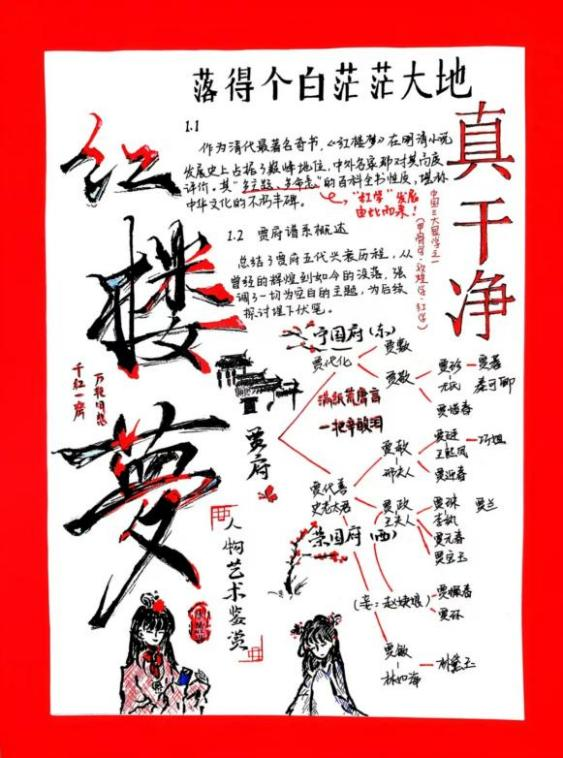 落得个白茫茫大地
真干净
红楼梦
千红一窟
1.1
作为清代最著名奇书，《红楼梦》在明清小说
发展史上占据了巅峰地位，中外名家都对其高度
评价，其"多主题、多命意"的百科全书性质，堪称
中华文化的不朽丰碑。
"红学"发展
由此而来！
中国三大显学之一
(甲骨学·敦煌学·红学)
1.2 贾府谱系概述
总结了贾府五代兴衰历程，从
曾经的辉煌到如今的没落，强
调了一切为空的主题，为后续
探讨埋下伏笔。
宁国府(东)
贾代化
贾敷
贾敬
贾珍
尤氏
贾蓉
秦可卿
贾惜春
满纸荒唐言
一把辛酸泪
贾府
贾代善
史老太君
荣国府(西)
贾赦
邢夫人
贾琏
王熙凤
巧姐
贾迎春
贾政
王夫人
贾珠
李纨
贾兰
贾元春
贾宝玉
(妾:赵姨娘)
贾探春
贾环
贾敏
林如海
林黛玉
人物艺术鉴赏